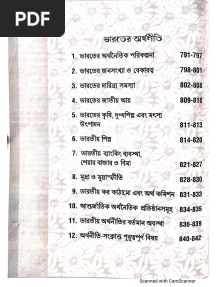 PDF
ভারতের অর্থনীতি
1. ভারতের অর্থনৈতিক পরিকল্পনা 791-797
2. ভারতের জনসংখ্যা ও বেকারত্ব 798-801
3. ভারতের দারিদ্র্য সমস্যা 802-808
4. ভারতের জাতীয় আয় 809-810
5. ভারতের কৃষি, দুগ্ধশিল্প এবং মৎস্য
উৎপাদন 811-813
6. ভারতীয় শিল্প 814-820
7. ভারতীয় ব্যাংকিং ব্যবস্থা,
শেয়ার বাজার ও বিমা 821-827
8. মুদ্রা ও মুদ্রাস্ফীতি 828-830
9. ভারতীয় কর কাঠামো এবং অর্থ কমিশন 831-833
10. আন্তর্জাতিক অর্থনৈতিক প্রতিষ্ঠানসমূহ 834-835
11. ভারতীয় অর্থনীতির বর্তমান অবস্থা 836-839
12. অর্থনীতি-সংক্রান্ত গুরুত্বপূর্ণ বিষয় 840-842
Scanned with CamScanner